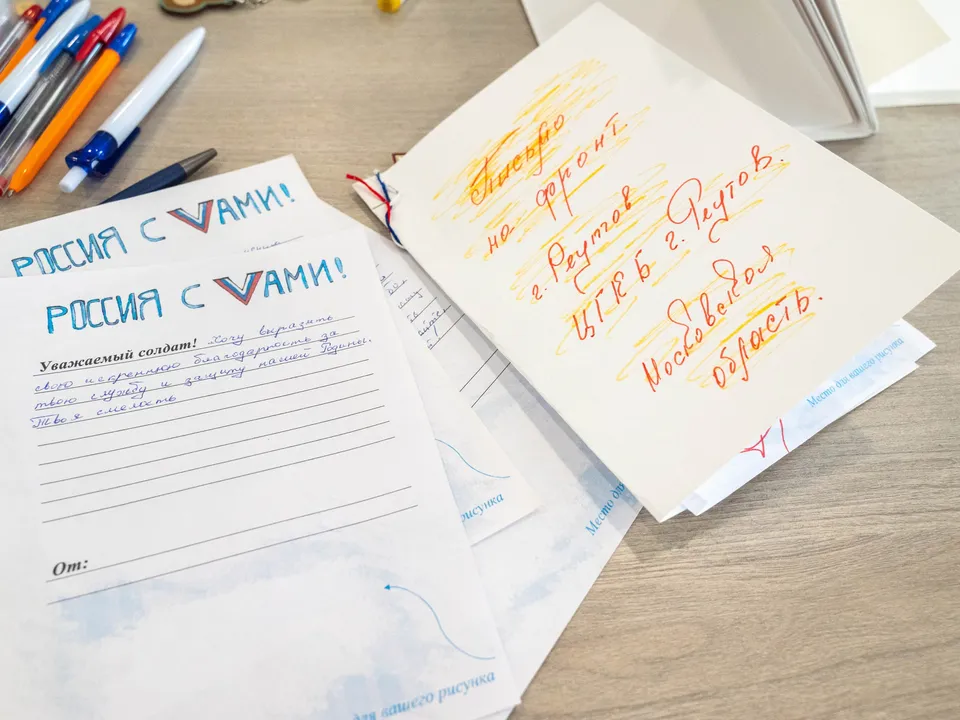 РОССИЯ С VАМИ!
РОССИЯ С VАМИ!
Уважаемый солдат! Хочу выразить
свою искреннюю благодарность за
твою службу и защиту нашей Родины.
Твоя смелость
От:
для вашего рисунка
рисунка
Место для
Письмо
на фронт.
г. Реутов
ЦГКБ г. Реутов.
Московская
область.
Место для вашего рисунка